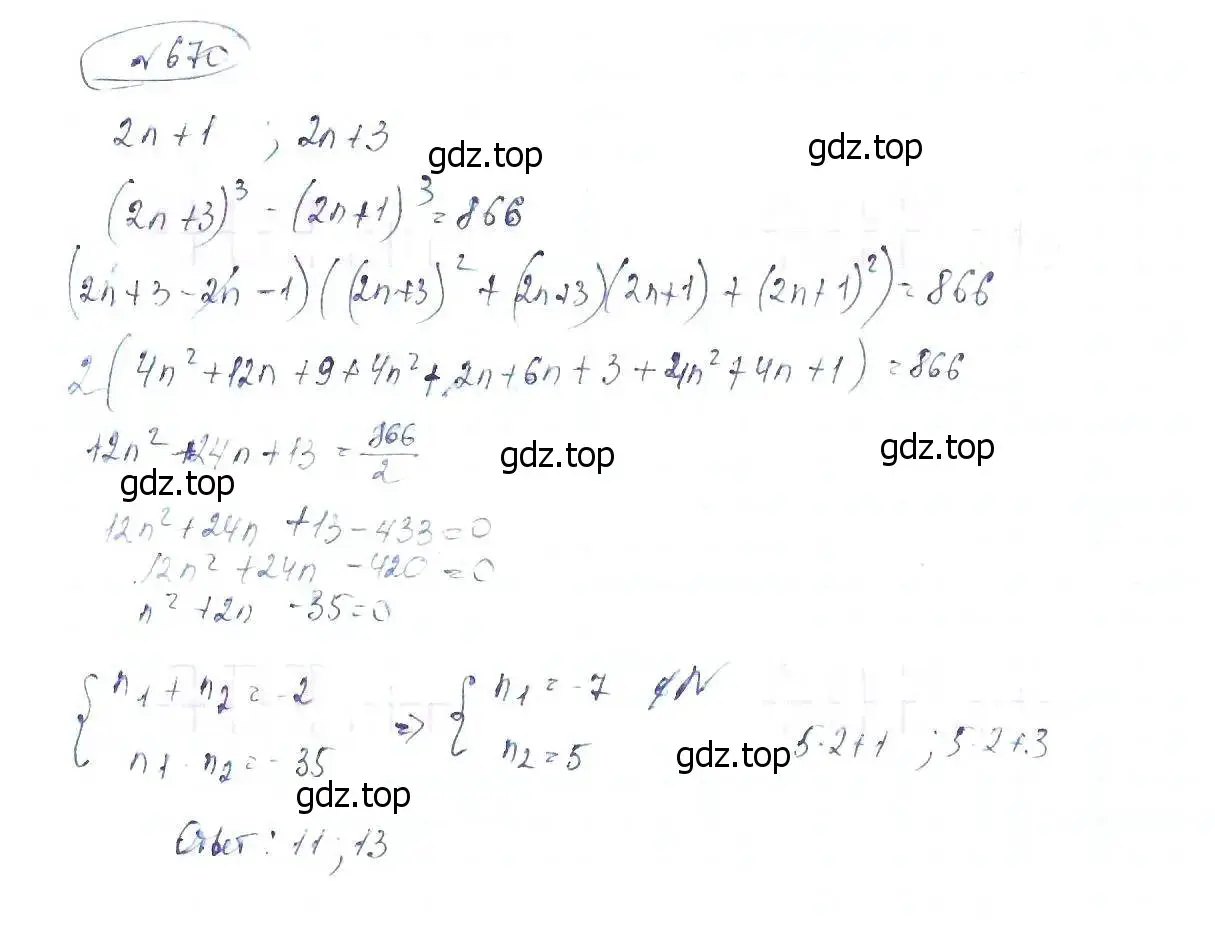 №670
2n+1 ; 2n+3
gdz.top
gdz.top
(2n+3)³ - (2n+1)³ = 866
(2n+3-2n-1)((2n+3)²+(2n+3)(2n+1)+(2n+1)²)=866
2(4n²+12n+9+4n²+2n+6n+3+4n²+4n+1)=866
12n²+24n+13=866/2
gdz.top
gdz.top
gdz.top
12n²+24n+13-433=0
12n²+24n-420=0
n²+2n-35=0
{n₁+n₂=-2 => {n₁=-7 ∉N
n₁·n₂=-35 n₂=5 gdz.top 5·2+1 ; 5·2+3
gdz.top
Ответ: 11; 13